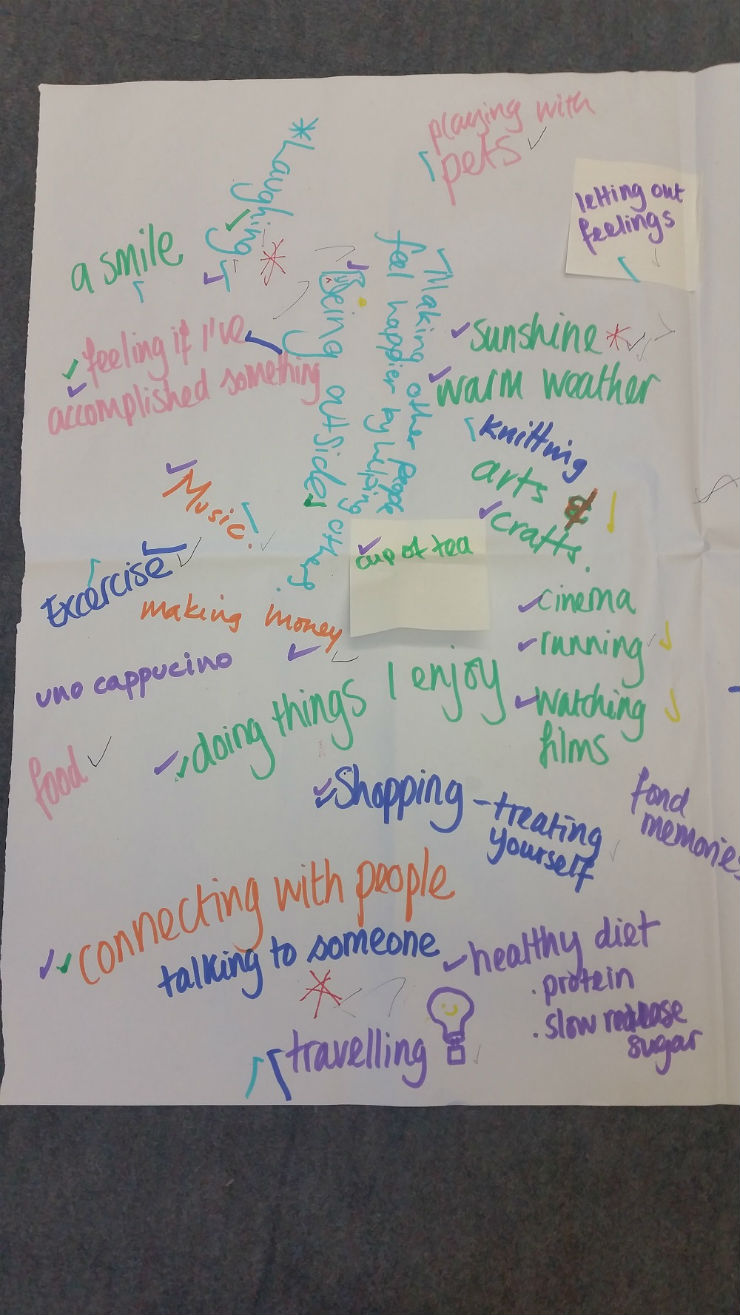 playing with
pets
letting out
feelings
Laughing
a smile
Making other people
feel happier by helping others.
Being outside
sunshine
warm weather
feeling if I've
accomplished something
knitting
arts &
crafts.
Music!
cup of tea
Excercise
making money
cinema
running
watching
films
uno cappucino
doing things I enjoy
food
Shopping - treating
yourself
fond
memories
connecting with people
talking to someone
healthy diet
. protein
. slow release
sugar
travelling